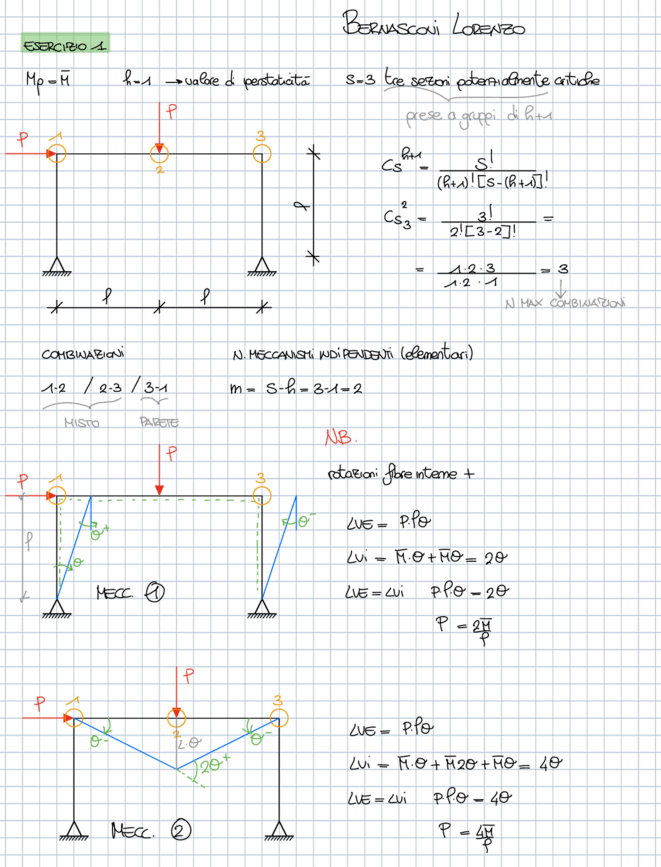 BERNASCONI LORENZO
ESERCIZIO 1
Mp = M̅ h=1 → valore di iperstaticità s=3 tre sezioni potenzialmente critiche
prese a gruppi di h+1
P
P
1
2
3
l
l
l
Cs^h+1 = S! / (h+1)![S-(h+1)]!
Cs₃² = 3! / 2![3-2]! =
= 1·2·3 / 1·2·1 = 3
N MAX COMBINAZIONI
COMBINAZIONI
1-2 / 2-3 / 3-1
MISTO PARETE
N. MECCANISMI INDIPENDENTI (elementari)
m = S-h = 3-1 = 2
P
P
1
3
l
θ
θ⁺
θ⁻
MECC. 1
NB.
rotazioni fibre interne +
LVE = P·lθ
LVi = M̅·θ + M̅θ = 2θ
LVE = LVi Pl·θ = 2θ
P = 2M̅/l
P
P
1
2
3
θ⁻
L·θ
θ⁻
2θ⁺
MECC. 2
LVE = P·lθ
LVi = M̅·θ + M̅2θ + M̅θ = 4θ
LVE = LVi Pl·θ = 4θ
P = 4M̅/l